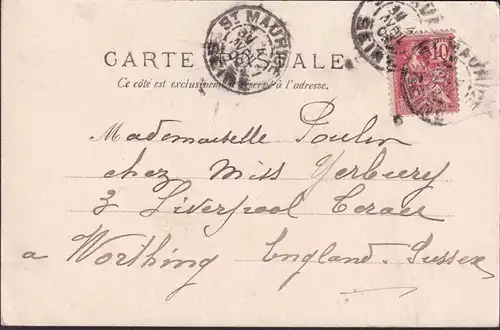 ST MAURICE
CARTE POSTALE
10
Ce côté est exclusivement réservé à l'adresse.
Mademoiselle Poulin
chez Miss Yerbury
3 Liverpool Terace
a Worthing England. Sussex